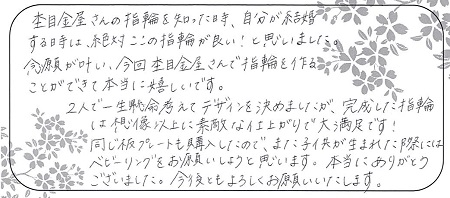 杢目金屋さんの指輪を知った時、自分が結婚
する時は、絶対ここの指輪が良い!と思いました。
念願が叶い、今回杢目金屋さんで指輪を作る
ことができて本当に嬉しいです。
2人で一生懸命考えてデザインを決めましたが、完成した指輪
は想像以上に素敵な仕上がりで大満足です!
同じ板プレートも購入したので、また子供が生まれた際には
ベビーリングをお願いしようと思います。本当にありがとう
ございました。今後ともよろしくお願いいたします。